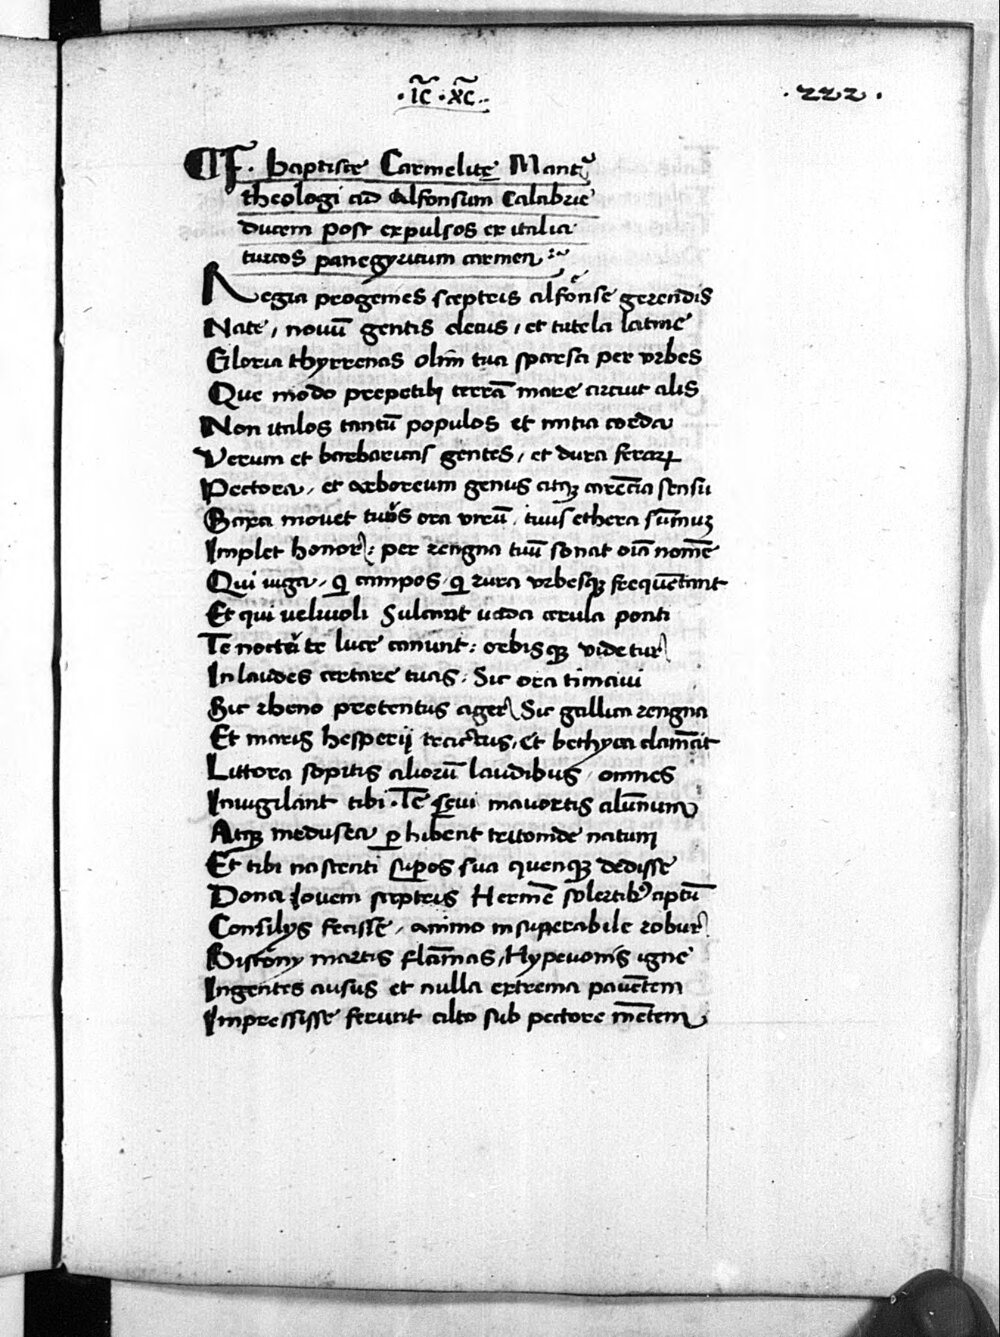 ·ic̃·xc̃··
·222·
F. baptiste Carmelite Mant⁹
theologi ad Alfonsum Calabrie
ducem post expulsos ex italia
turcos panegyricum carmen
Regia progemes sceptris alfõnse gerendis
Nate, nouũ gentis decus, et tutela latine
Gloria thyrrenas olim tua sparsa per vrbes
Que modo prepetibꝫ terrã mare circuit alis
Non italos tantũ populos et mitia corda
Verum et barbaricas gentes, et dura feraꝝ
Pectora, et arboreum genus atqꝫ carẽcia sensu
Saxa mouet tuos ora virũ, tuus ethera sũmuꝫ
Implet honor: per rengna tuũ sonat oĩa nomẽ
Qui iuga, ꝗ campos, ꝗ rura vrbesqꝫ frequẽtant
Et qui veliuoli Sulcant uada cerula ponti
Te noctẽ te luce canunt: orbisqꝫ videtur
In laudes certare tuas, Sic ora timaui
Sic rheno pretentus ager Sic gallica rengna
Et maris hesperij tractus, et bethyca clamãt
Littora sopitis aliorũ laudibus, omnes
Inuigilant tibi. Te seui mauortis alũnum
Atqꝫ meduseа ꝑhibent tritonide natum
Et tibi nascenti supos sua quenqꝫ dedisse
Dona Iouem sceptris Hermẽ solertib⁹ aptũ
Consilijs fecisse, animo insuperabile robur
Bistony martis flãmas, Hyperionis igne
Ingentes ausus et nulla extrema pauẽtem
Impressisse ferunt alto sub pectore mẽtem